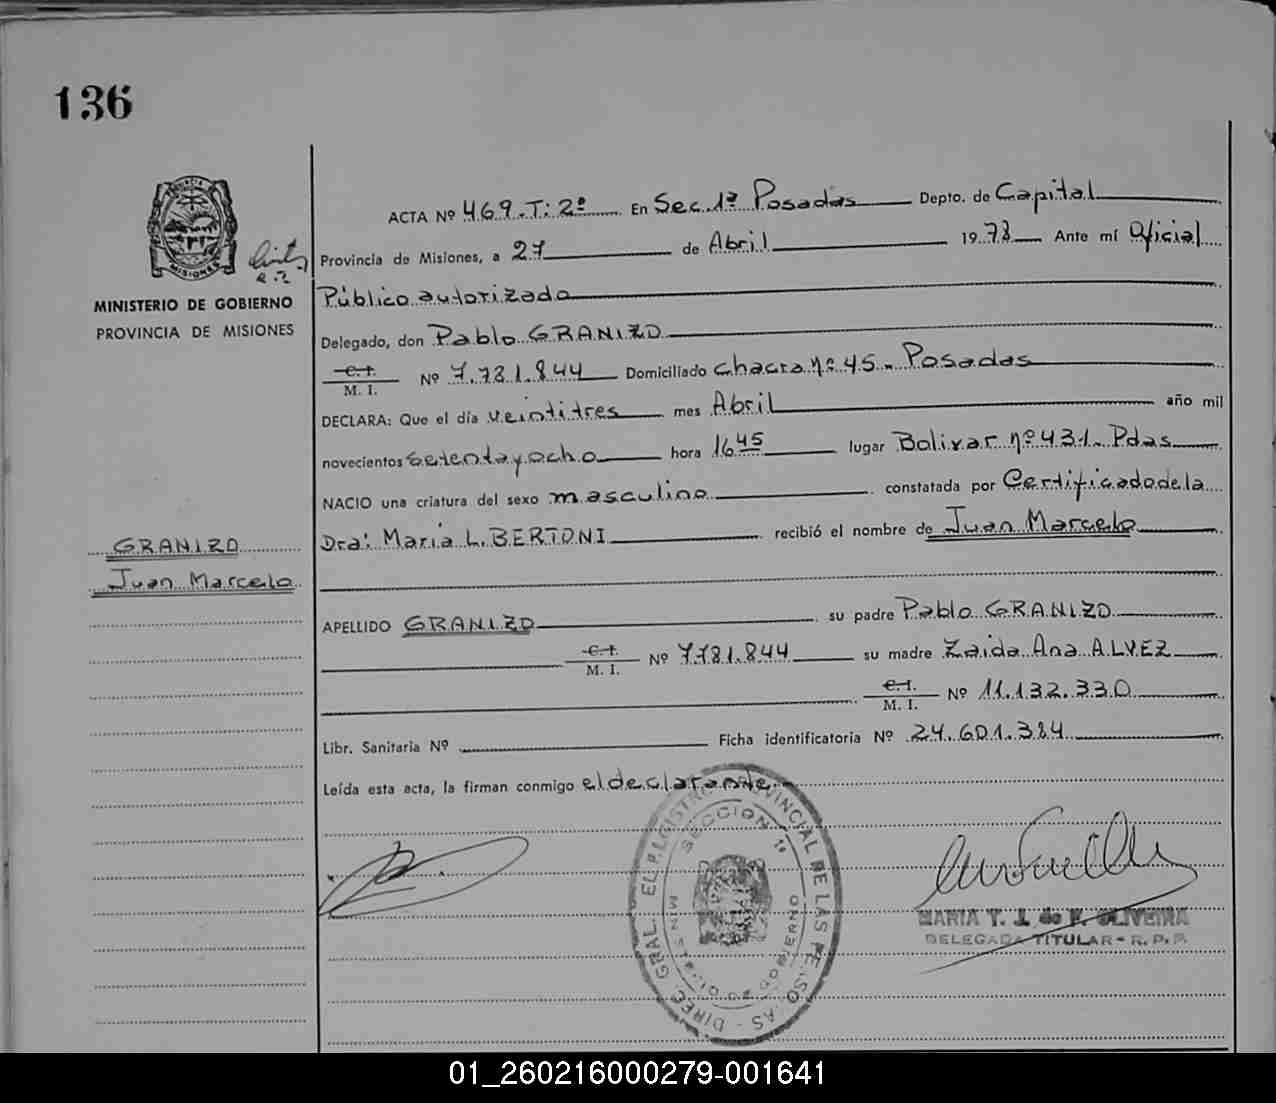 136
ACTA Nº 469.T:2º En Sec.1ª Posadas Depto. de Capital
Provincia de Misiones, a 27 de Abril 1978 Ante mí Oficial
Público autorizado
MINISTERIO DE GOBIERNO
PROVINCIA DE MISIONES
Delegado, don Pablo GRANIZO
C.I.
M. I. Nº 7.781.844 Domiciliado chacra nº 45. Posadas
DECLARA: Que el día veintitres mes Abril año mil
novecientos setenta y ocho hora 16 45 lugar Bolivar nº 431. Pdas
NACIO una criatura del sexo masculino constatada por Certificado de la
Dra: Maria L. BERTONI recibió el nombre de Juan Marcelo
GRANIZO
Juan Marcelo
APELLIDO GRANIZO su padre Pablo GRANIZO
C.I.
M. I. Nº 7.781.844 su madre Zaida Ana ALVEZ
C.I.
M. I. Nº 11.132.330
Libr. Sanitaria Nº Ficha identificatoria Nº 24.601.384
Leída esta acta, la firman conmigo el declarante
DIREC. GRAL. EL REGISTRO PROVINCIAL DE LAS PERSONAS
SECCION 1ª
MINISTERIO DE GOBIERNO
MARIA T. J. de F. OLIVEIRA
DELEGADA TITULAR - R. P. P.
01_260216000279-001641